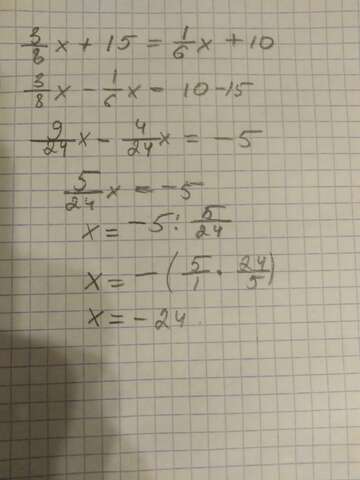 3/8 x + 15 = 1/6 x + 10
3/8 x - 1/6 x - 10 - 15
9/24 x - 4/24 x = -5
5/24 x = -5
x = -5 : 5/24
x = -(5/1 · 24/5)
x = -24